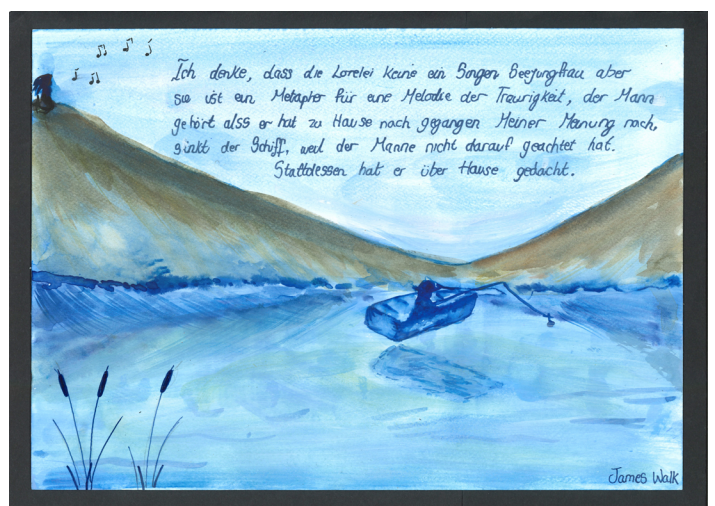 Ich denke, dass die Lorelei keine ein Seejungfrau aber
sie ist ein Metapher für eine Melodie der Traurigkeit, der Mann
gehört alss er hat zu Hause nach gegangen Meiner Meinung nach,
sinkt der Schiff, weil der Manne nicht darauf geachtet hat.
Stattdessen hat er über Hause gedacht.
James Walk